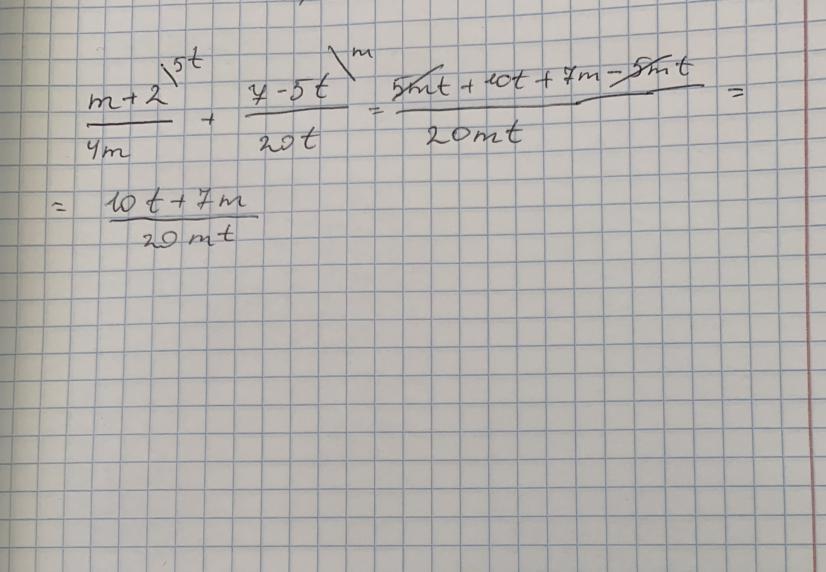 (m+2)/(4m) \5t + (7-5t)/(20t) \m = (5mt+10t+7m-5mt)/(20mt) =
= (10t+7m)/(20mt)